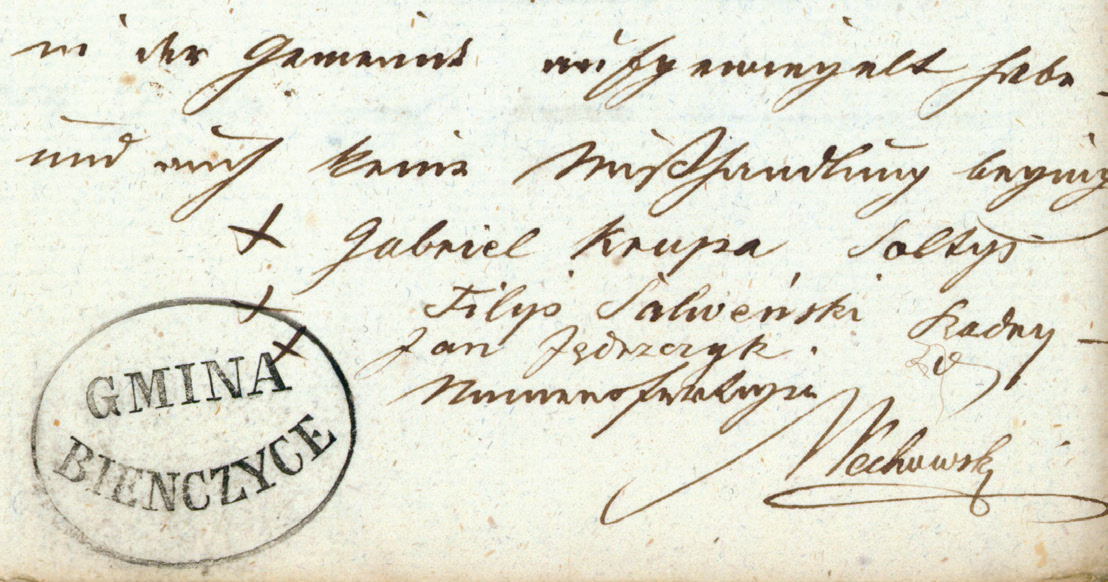 in der Gemeinde aufgewiegelt habe
und auch keine Mißhandlung beging
+ Gabriel Krupa Soltys
+ Filip Salweński Radny
+ Jan Jędrzczyk id
Namensfertiger
Wechowski
GMINA
BIENCZYCE